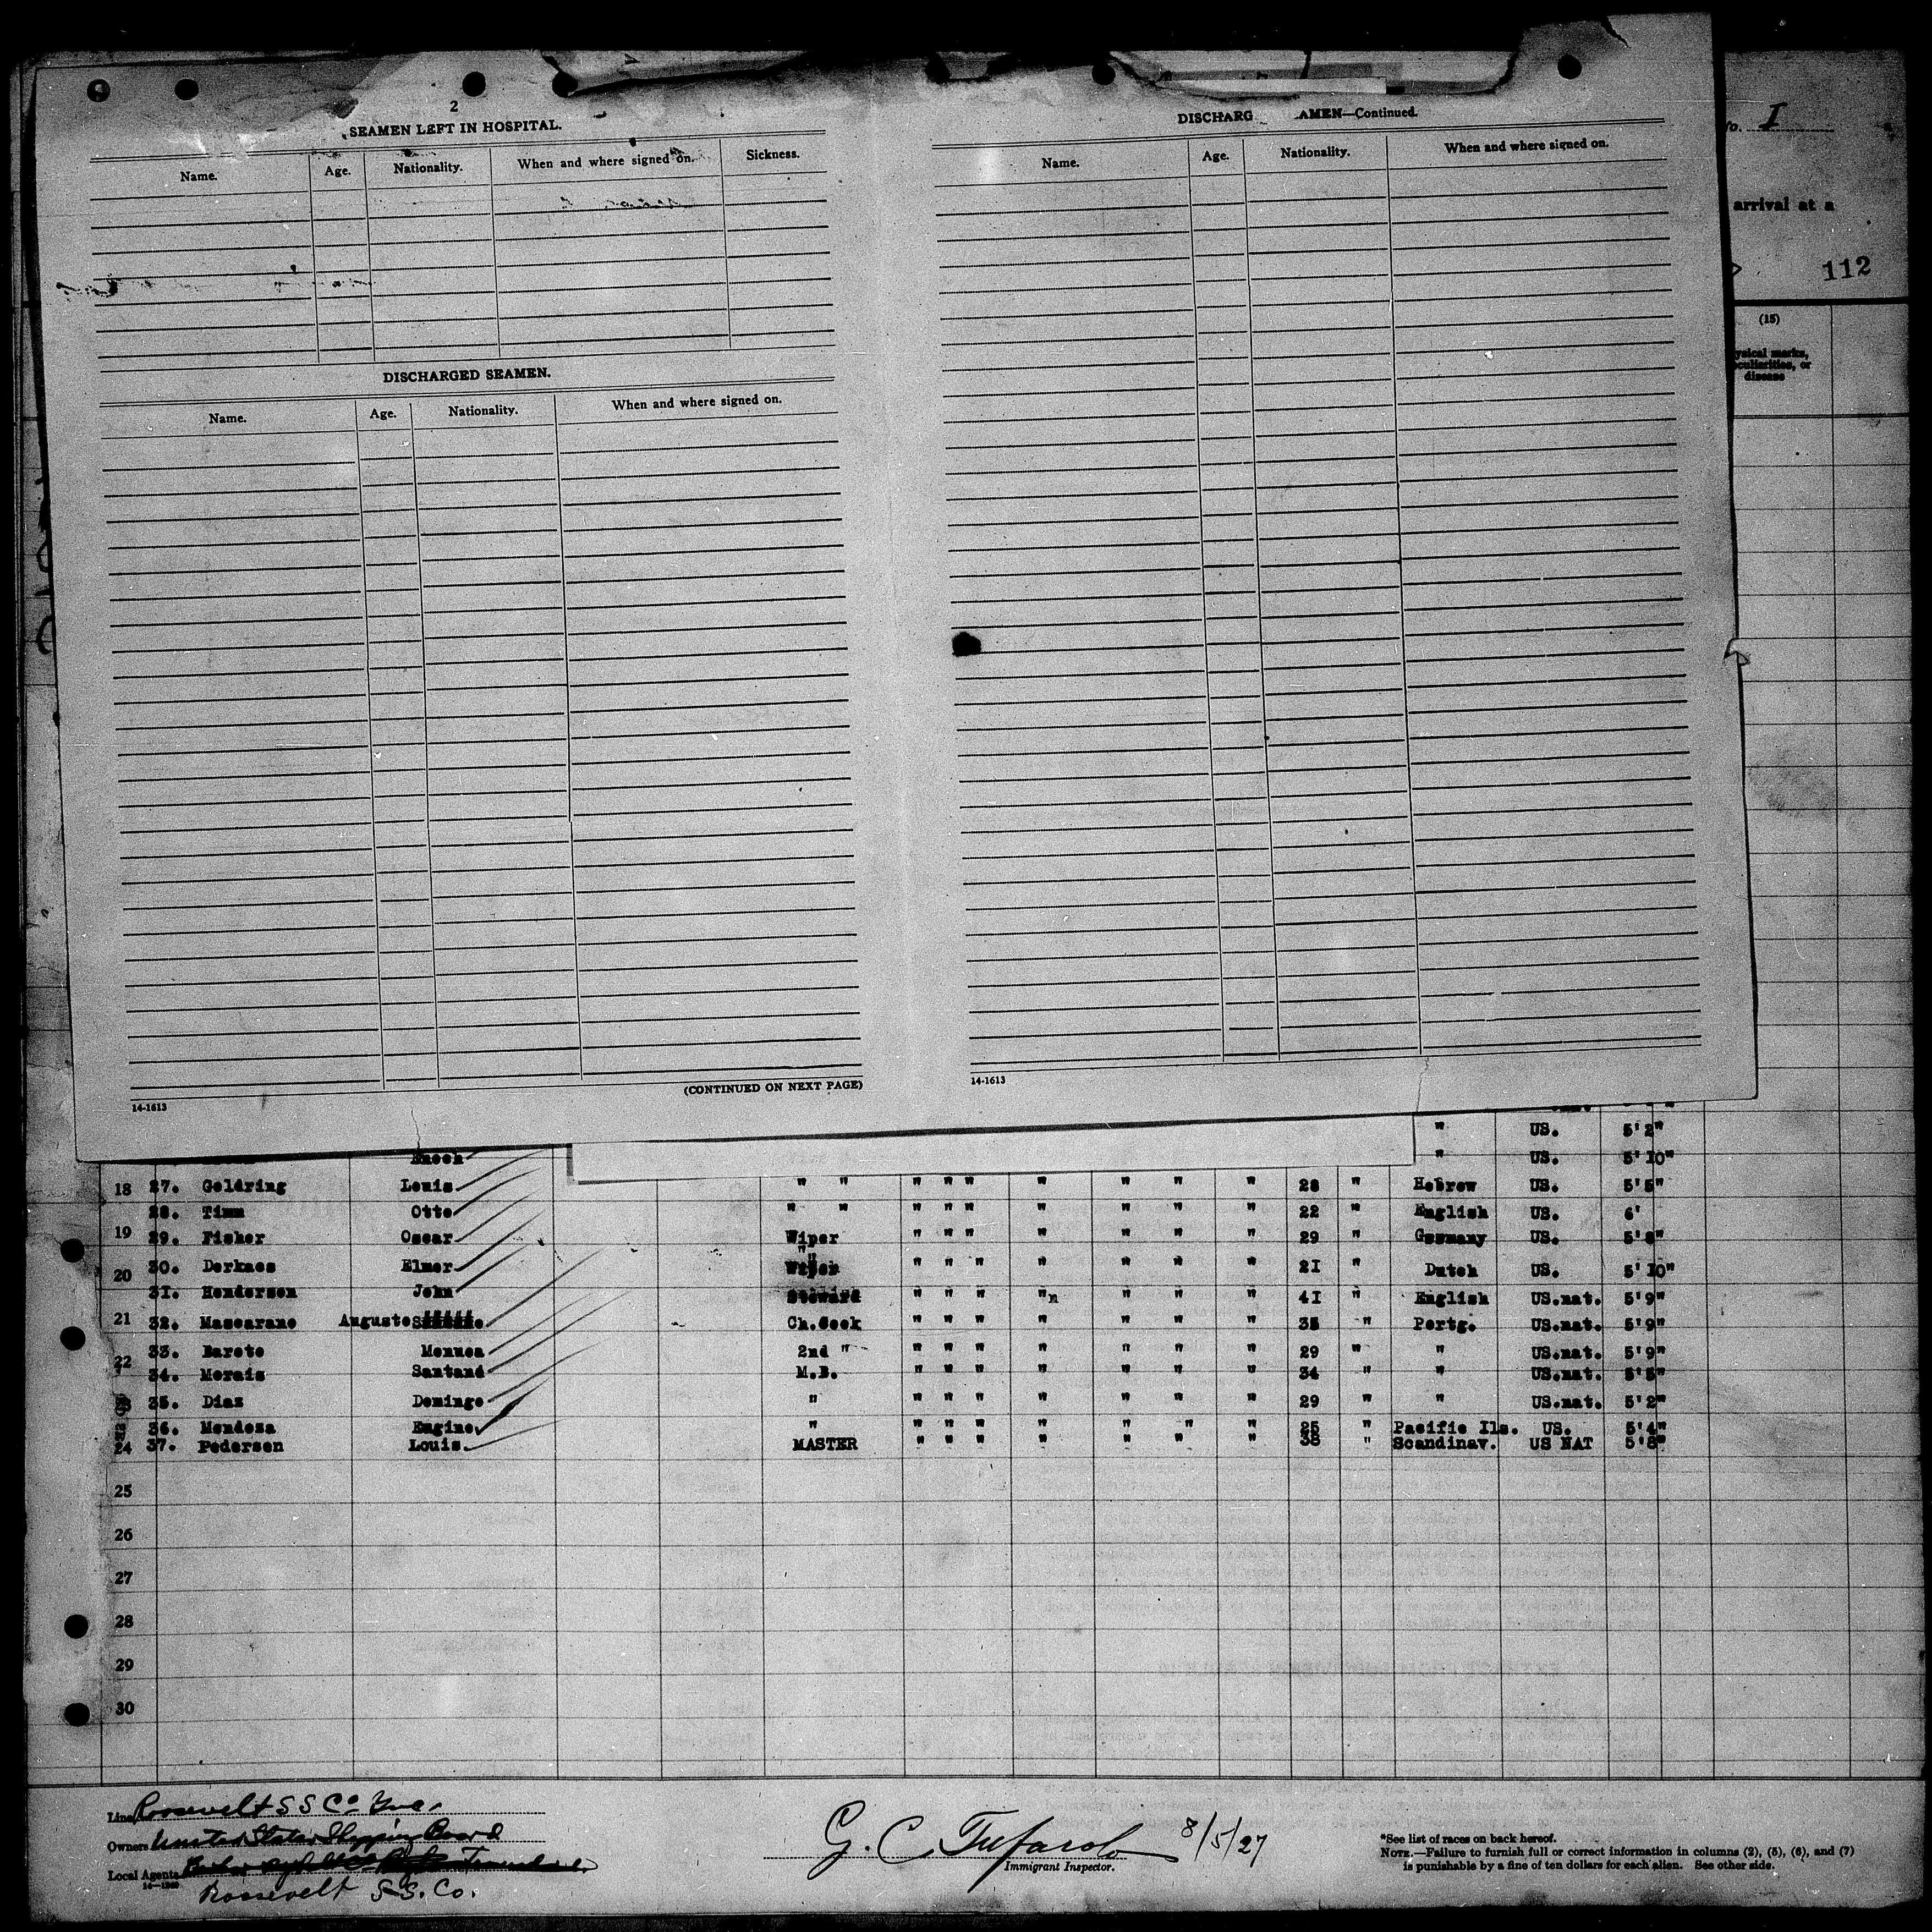 2
SEAMEN LEFT IN HOSPITAL.
Name. Age. Nationality. When and where signed on. Sickness.
DISCHARGED SEAMEN.
Name. Age. Nationality. When and where signed on.
(CONTINUED ON NEXT PAGE)
14-1613
DISCHARG AMEN—Continued.
Name. Age. Nationality. When and where signed on.
14-1613
o. I
arrival at a
112
(15)
ysical marks,
culiarities, or
disease
" US. 5'2"
Enoch " US. 5'10"
18 27. Goldring Louis " " " " " " " " " 28 " Hebrew US. 5'5"
28. Timm Otto " " " " " " " " " 22 " English US. 6'
19 29. Fisher Oscar Wiper " " " " " " " 29 " Germany US. 5'8"
20 30. Derkaes Elmer " " " " " " " 21 " Dutch US. 5'10"
31. Henderson John Steward " " " "n " " " 41 " English US.nat. 5'9"
21 32. Mascarano Auguste Ch.Cook " " " " " " " 35 " Portg. US.nat. 5'9"
22 33. Barote Mennea 2nd " " " " " " " " 29 " " US.nat. 5'9"
34. Morais Santand M.B. " " " " " " " 34 " " US.nat. 5'5"
35. Diaz Domingo " " " " " " " " 29 " " US.nat. 5'2"
36. Mendoza Engine " " " " " " " " 25 " Pacific Ils. US. 5'4"
24 37. Pedersen Louis. MASTER " " " " " " " 38 " Scandinav. US NAT 5'8"
25
26
27
28
29
30
Line Roosevelt S S Co. Inc.
Owners United States Shipping Board
Local Agents
Roosevelt S.S. Co.
G. C. Tufarolo 8/5/27
Immigrant Inspector.
*See list of races on back hereof.
NOTE.—Failure to furnish full or correct information in columns (2), (5), (6), and (7)
is punishable by a fine of ten dollars for each alien. See other side.